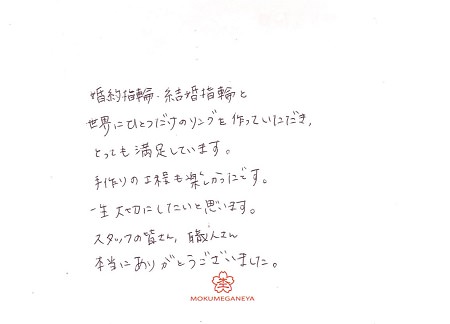 婚約指輪・結婚指輪と
世界にひとつだけのリングを作っていただき、
とっても満足しています。
手作りの工程も楽しかったです。
一生大切にしたいと思います。
スタッフの皆さん、職人さん
本当にありがとうございました。
MOKUMEGANEYA